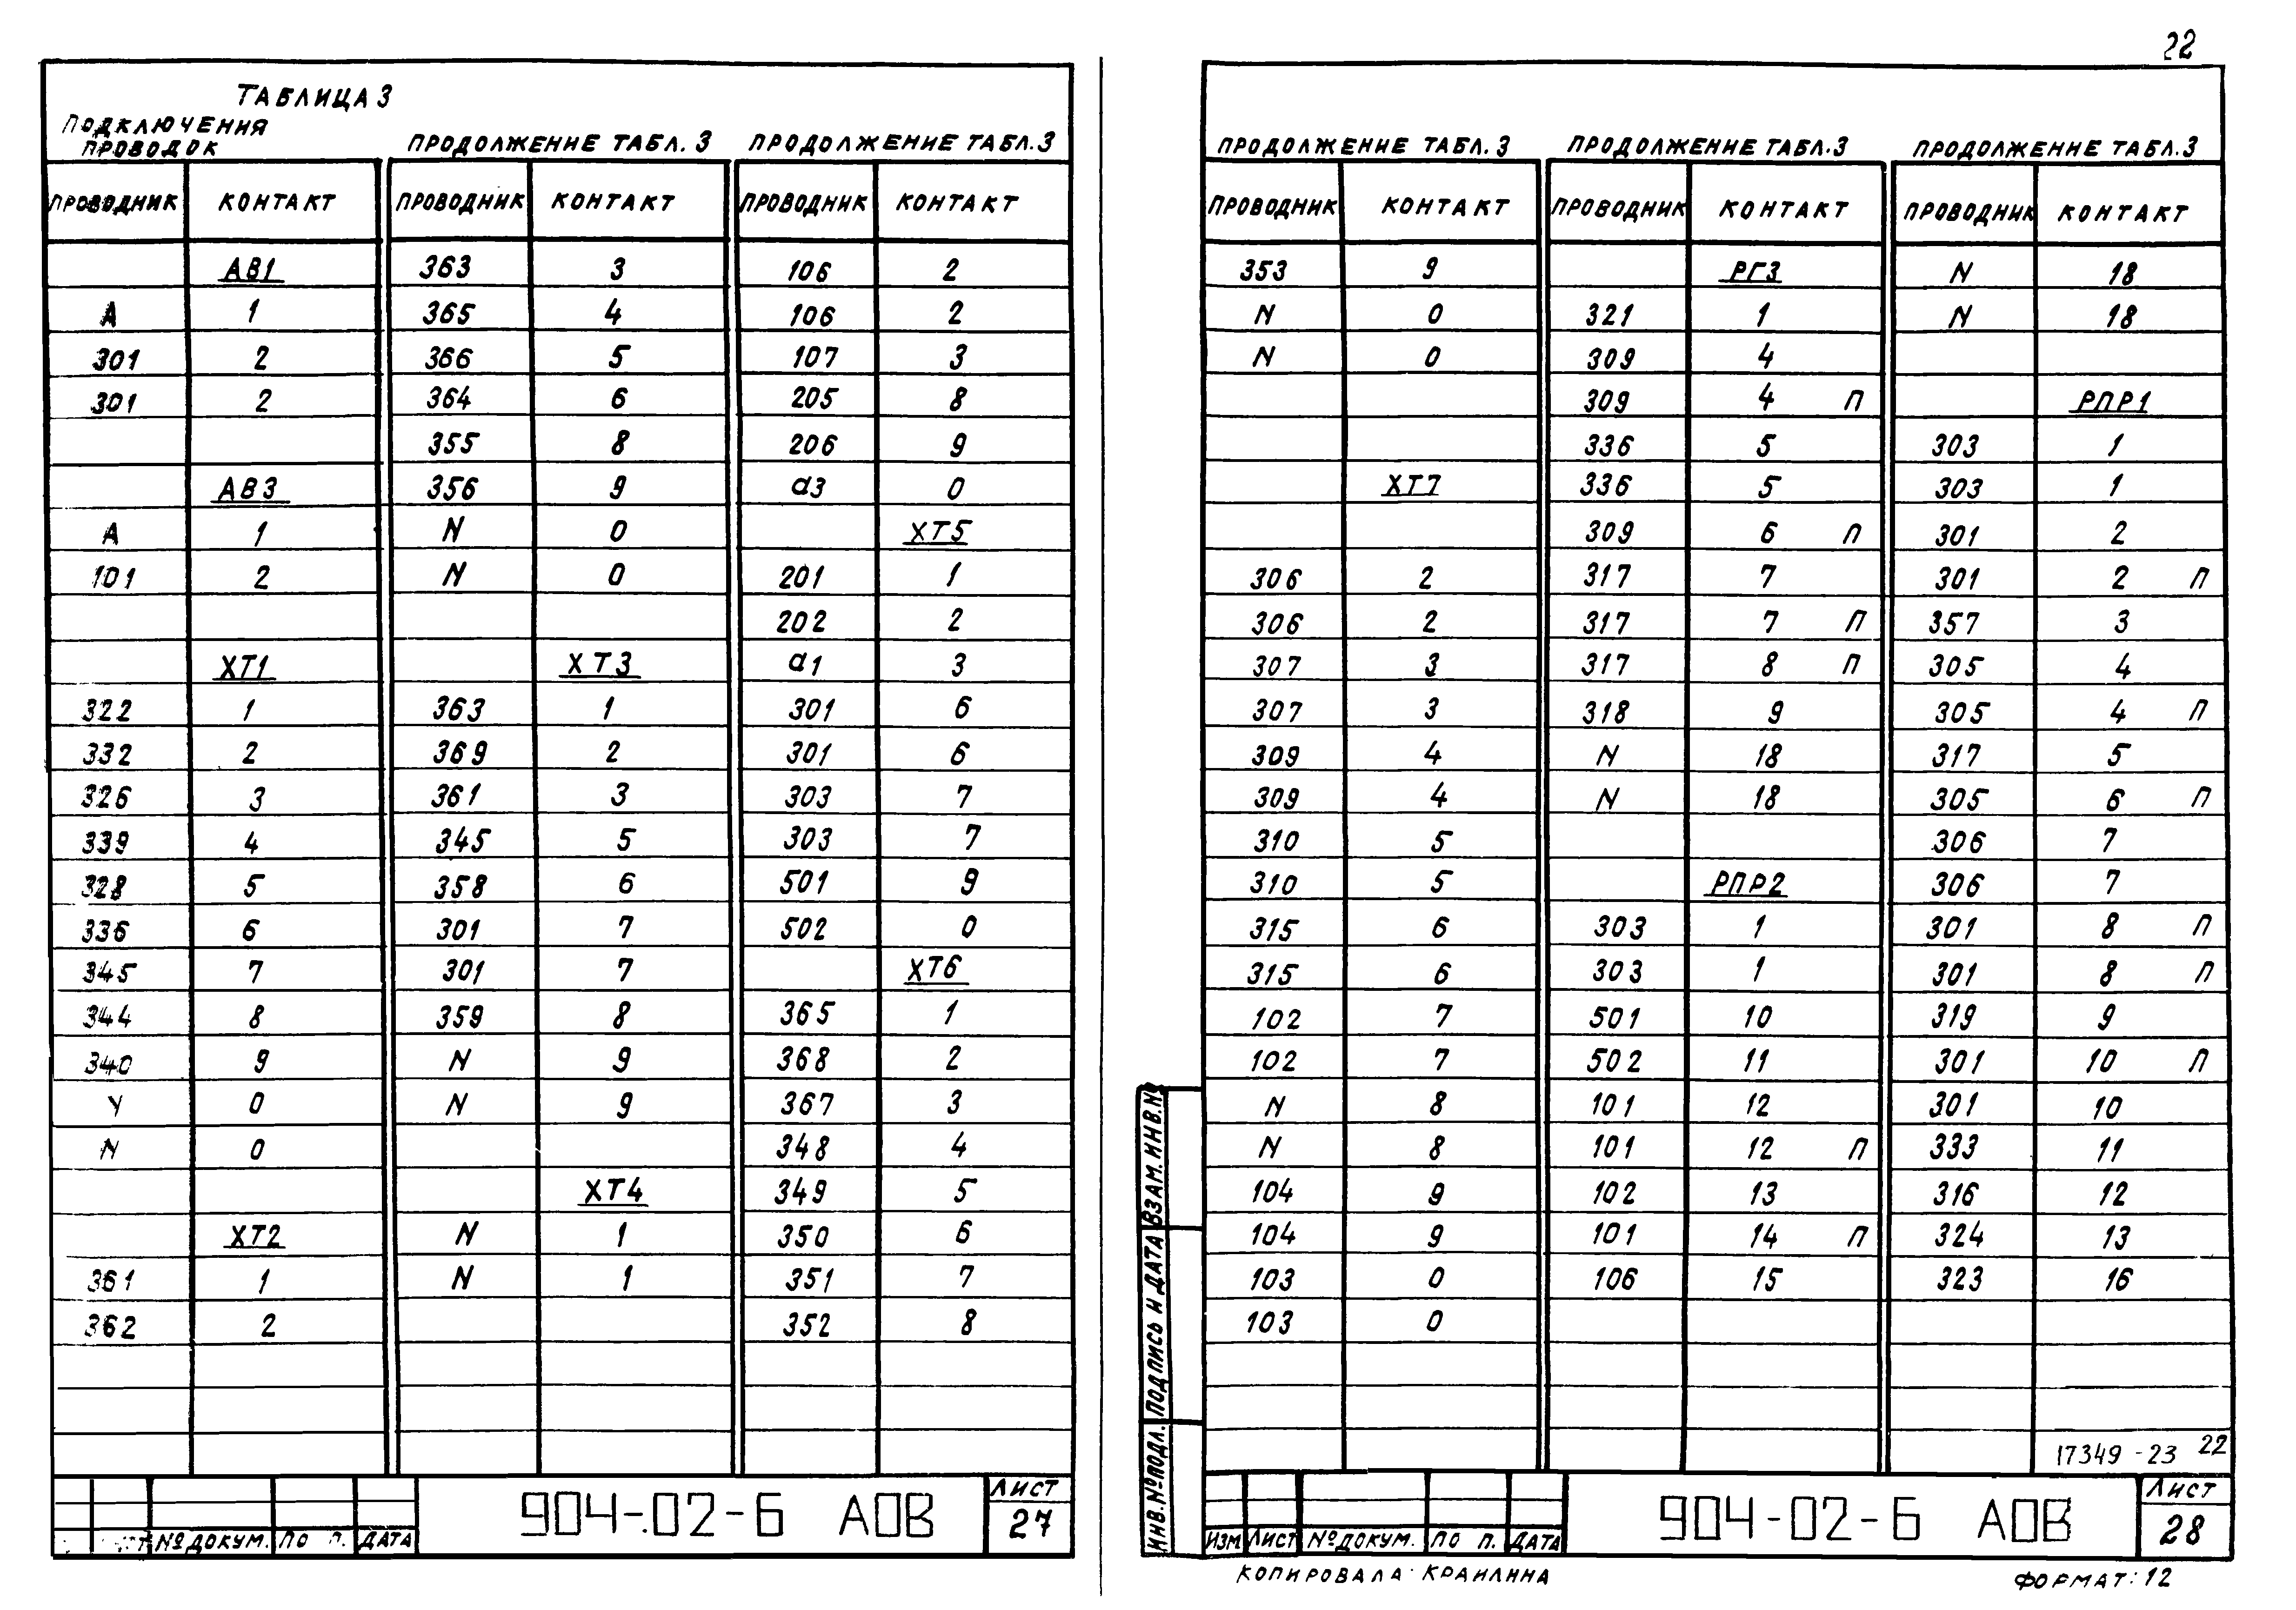 22
ТАБЛИЦА 3
ПОДКЛЮЧЕНИЯ
ПРОВОДОК
ПРОВОДНИК КОНТАКТ
АВ1
А 1
301 2
301 2
АВ3
А 1
101 2
ХТ1
322 1
332 2
326 3
339 4
328 5
336 6
345 7
344 8
340 9
0
N 0
ХТ2
361 1
362 2
ПРОДОЛЖЕНИЕ ТАБЛ. 3
ПРОВОДНИК КОНТАКТ
363 3
365 4
366 5
364 6
355 8
356 9
N 0
N 0
ХТ3
363 1
369 2
361 3
345 5
358 6
301 7
301 7
359 8
N 9
N 9
ХТ4
N 1
N 1
ПРОДОЛЖЕНИЕ ТАБЛ.3
ПРОВОДНИК КОНТАКТ
106 2
106 2
107 3
205 8
206 9
а3 0
ХТ5
201 1
202 2
а1 3
301 6
301 6
303 7
303 7
501 9
502 0
ХТ6
365 1
368 2
367 3
348 4
349 5
350 6
351 7
352 8
№ ДОКУМ. ПО П. ДАТА
904-02-6 АОВ
ЛИСТ
27
ПРОДОЛЖЕНИЕ ТАБЛ. 3
ПРОВОДНИК КОНТАКТ
353 9
N 0
N 0
ХТ7
306 2
306 2
307 3
307 3
309 4
309 4
310 5
310 5
315 6
315 6
102 7
102 7
N 8
N 8
104 9
104 9
103 0
103 0
ПРОДОЛЖЕНИЕ ТАБЛ.3
ПРОВОДНИК КОНТАКТ
РГ3
321 1
309 4
309 4 П
336 5
336 5
309 6 П
317 7
317 7 П
317 8 П
318 9
N 18
N 18
РПР2
303 1
303 1
501 10
502 11
101 12
101 12 П
102 13
101 14 П
106 15
ПРОДОЛЖЕНИЕ ТАБЛ.3
ПРОВОДНИК КОНТАКТ
N 18
N 18
РПР1
303 1
303 1
301 2
301 2 П
357 3
305 4
305 4 П
317 5
305 6 П
306 7
306 7
301 8 П
301 8 П
319 9
301 10 П
301 10
333 11
316 12
324 13
323 16
17349-23 22
ИНВ.№ПОДЛ. ПОДПИСЬ И ДАТА ВЗАМ.ИНВ.№
ИЗМ ЛИСТ № ДОКУМ. ПО П. ДАТА
904-02-6 АОВ
ЛИСТ
28
КОПИРОВАЛА КРАИЛИНА
ФОРМАТ: 12